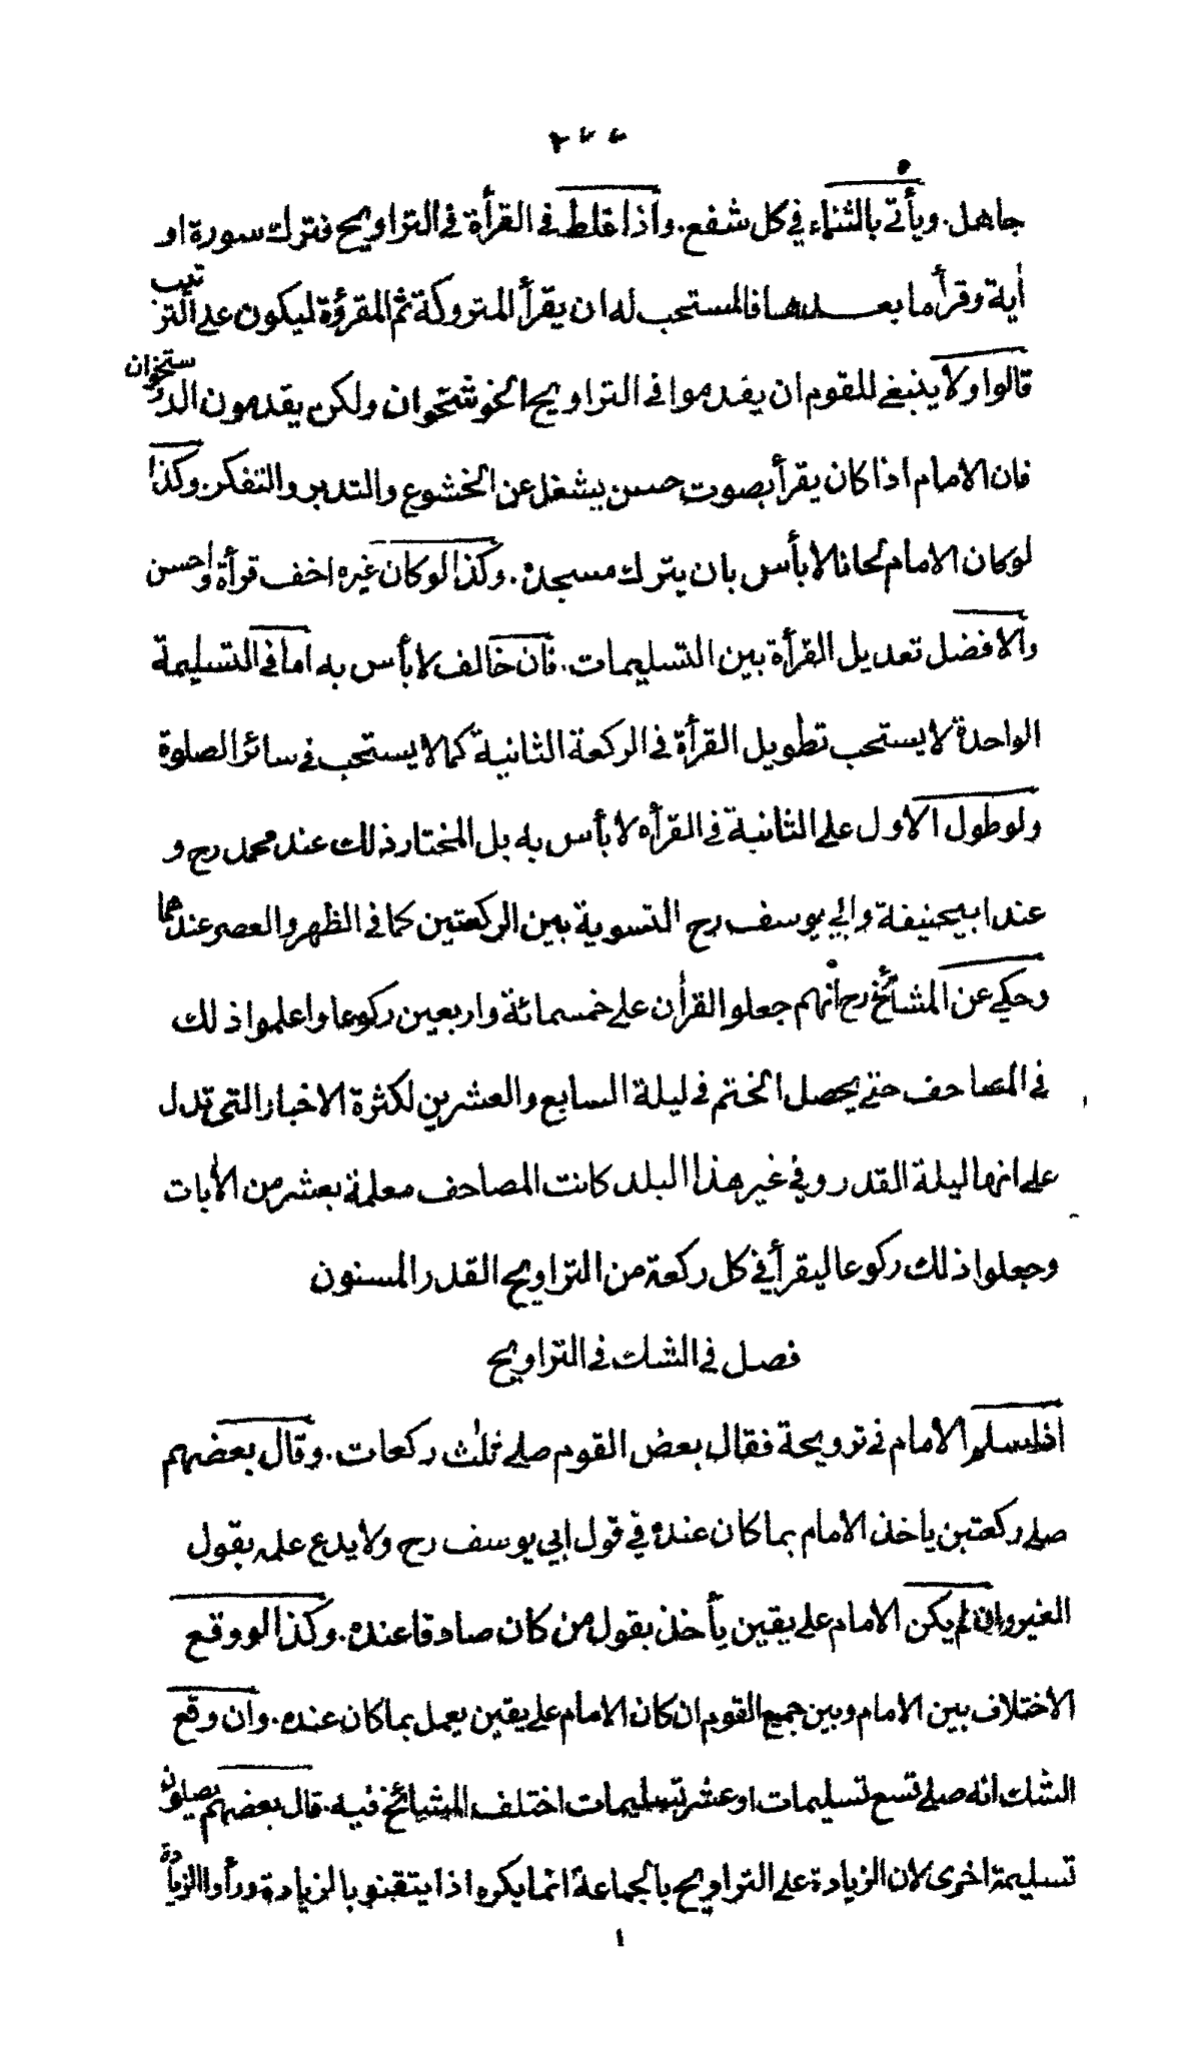 جاهل. ويأتي بالثناء في كل شفع. واذا غلط في القرأة في التراويح فترك سورة او
أية وقرأ ما بعدها فالمستحب له ان يقرأ المتروكة ثم المقرؤة ليكون على الترتيب
قالوا ولا ينبغي للقوم ان يقدموا في التراويح الخوشخوان ولكن يقدمون الدرستخوان
فان الامام اذا كان يقرأ بصوت حسن يشغل عن الخشوع والتدبر والتفكر. وكذا
لو كان الامام لحانا لا بأس بان يترك مسجده. وكذا لو كان غيره اخف قرأة واحسن
والافضل تعديل القرأة بين التسليمات. فان خالف لا بأس به اما في التسليمة
الواحدة لا يستحب تطويل القرأة في الركعة الثانية كما لا يستحب في سائر الصلوة
ولو طول الاول على الثانية في القرأة لا بأس به بل المختار ذلك عند محمد رح و
عند ابيحنيفة وابي يوسف رح التسوية بين الركعتين كما في الظهر والعصر عندهما
وحكي عن المشائخ رح أنهم جعلوا القرأن على خمسمائة واربعين ركوعا واعلموا ذلك
في المصاحف حتى يحصل الختم في ليلة السابع والعشرين لكثرة الاخبار التي تدل
على انها ليلة القدر وفي غير هذا البلد كانت المصاحف معلمة بعشر من الأيات
وجعلوا ذلك ركوعا ليقرأ في كل ركعة من التراويح القدر المسنون
فصل في الشك في التراويح
اذا سلم الامام في ترويحة فقال بعض القوم صلى ثلث ركعات. وقال بعضهم
صلى ركعتين ياخذ الامام بما كان عنده في قول ابي يوسف رح ولا يدع علمه بقول
الغير وان لم يكن الامام على يقين يأخذ بقول من كان صادقا عنده. وكذا لو وقع
الاختلاف بين الامام وبين جميع القوم ان كان الامام على يقين يعمل بما كان عنده. وان وقع
الشك انه صلى تسع تسليمات او عشر تسليمات اختلف المشائخ فيه. قال بعضهم يصلون
تسليمة اخرى لان الزيادة على التراويح بالجماعة انما يكره اذا يتقنو بالزيادة ورأوا الزيادة
١